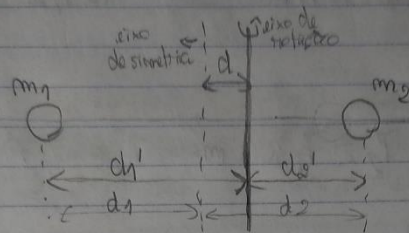 eixo
de simetria
eixo de
rotação
d
m1
m2
d1'
d2'
d1
d2